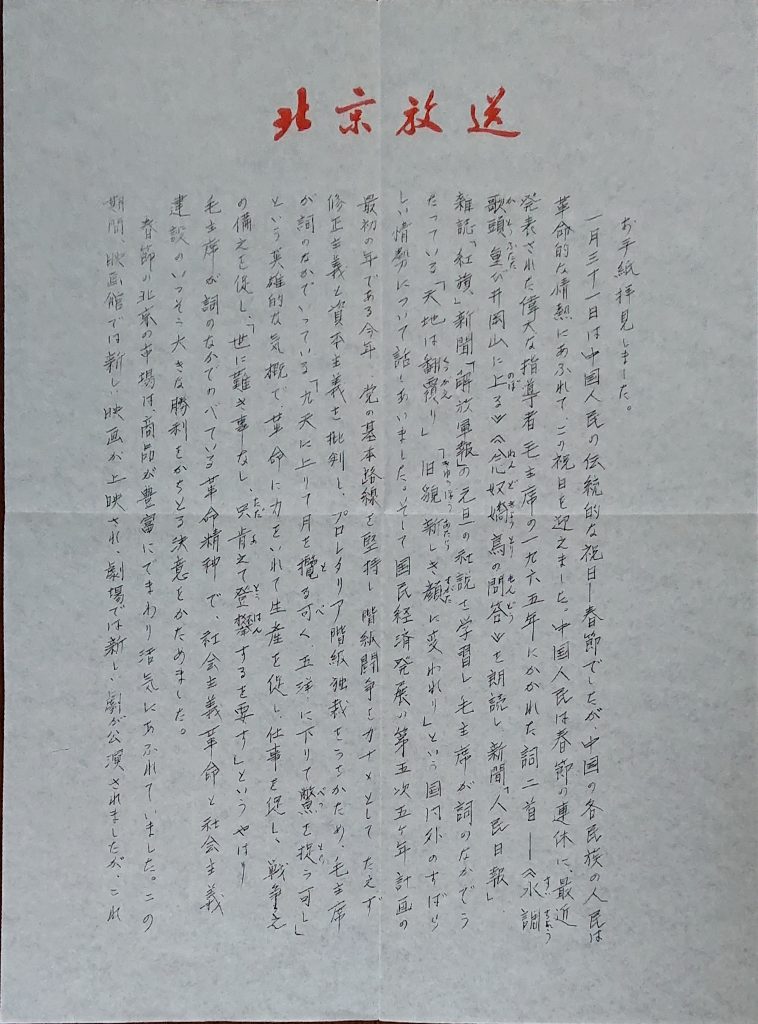 北京放送
お手紙拝見しました。
一月三十一日は中国人民の伝統的な祝日―春節でしたが、中国の各民族の人民は
革命的な情熱にあふれて、この祝日を迎えました。中国人民は春節の連休に、最近
発表された偉大な指導者毛主席の一九六五年にかかれた詞二首―《水調
歌頭 重び井岡山に上る》《念奴嬌 鳥の問答》を朗読し、新聞「人民日報」、
雑誌「紅旗」、新聞「解放軍報」の元旦の社説を学習し、毛主席が詞のなかでう
たっている「天地は翻覆り」「旧貌新しき顔に変われり」という国内外のすばら
しい情勢について話しあいました。そして国民経済発展の第五次五ヶ年計画の
最初の年である今年、党の基本路線を堅持し、階級闘争をカナメとして、たえず
修正主義と資本主義を批判し、プロレタリア階級独裁をうちかため、毛主席
が詞のなかでいっている「九天に上りて月を攬る可く、五洋に下りて鱉を捉う可し」
という英雄的な気概で、革命に力をいれて生産を促し、仕事を促し、戦争え
の備えを促し、「世に難き事なし、只肯えて登攀するを要す」というやはり
毛主席が詞のなかでのべている革命精神で、社会主義革命と社会主義
建設のいっそう大きな勝利をかちとる決意をかためました。
春節の北京の市場は、商品が豊富にでまわり活気にあふれていました。この
期間、映画館では新しい映画が上映され、劇場では新しい劇が公演されましたが、これ